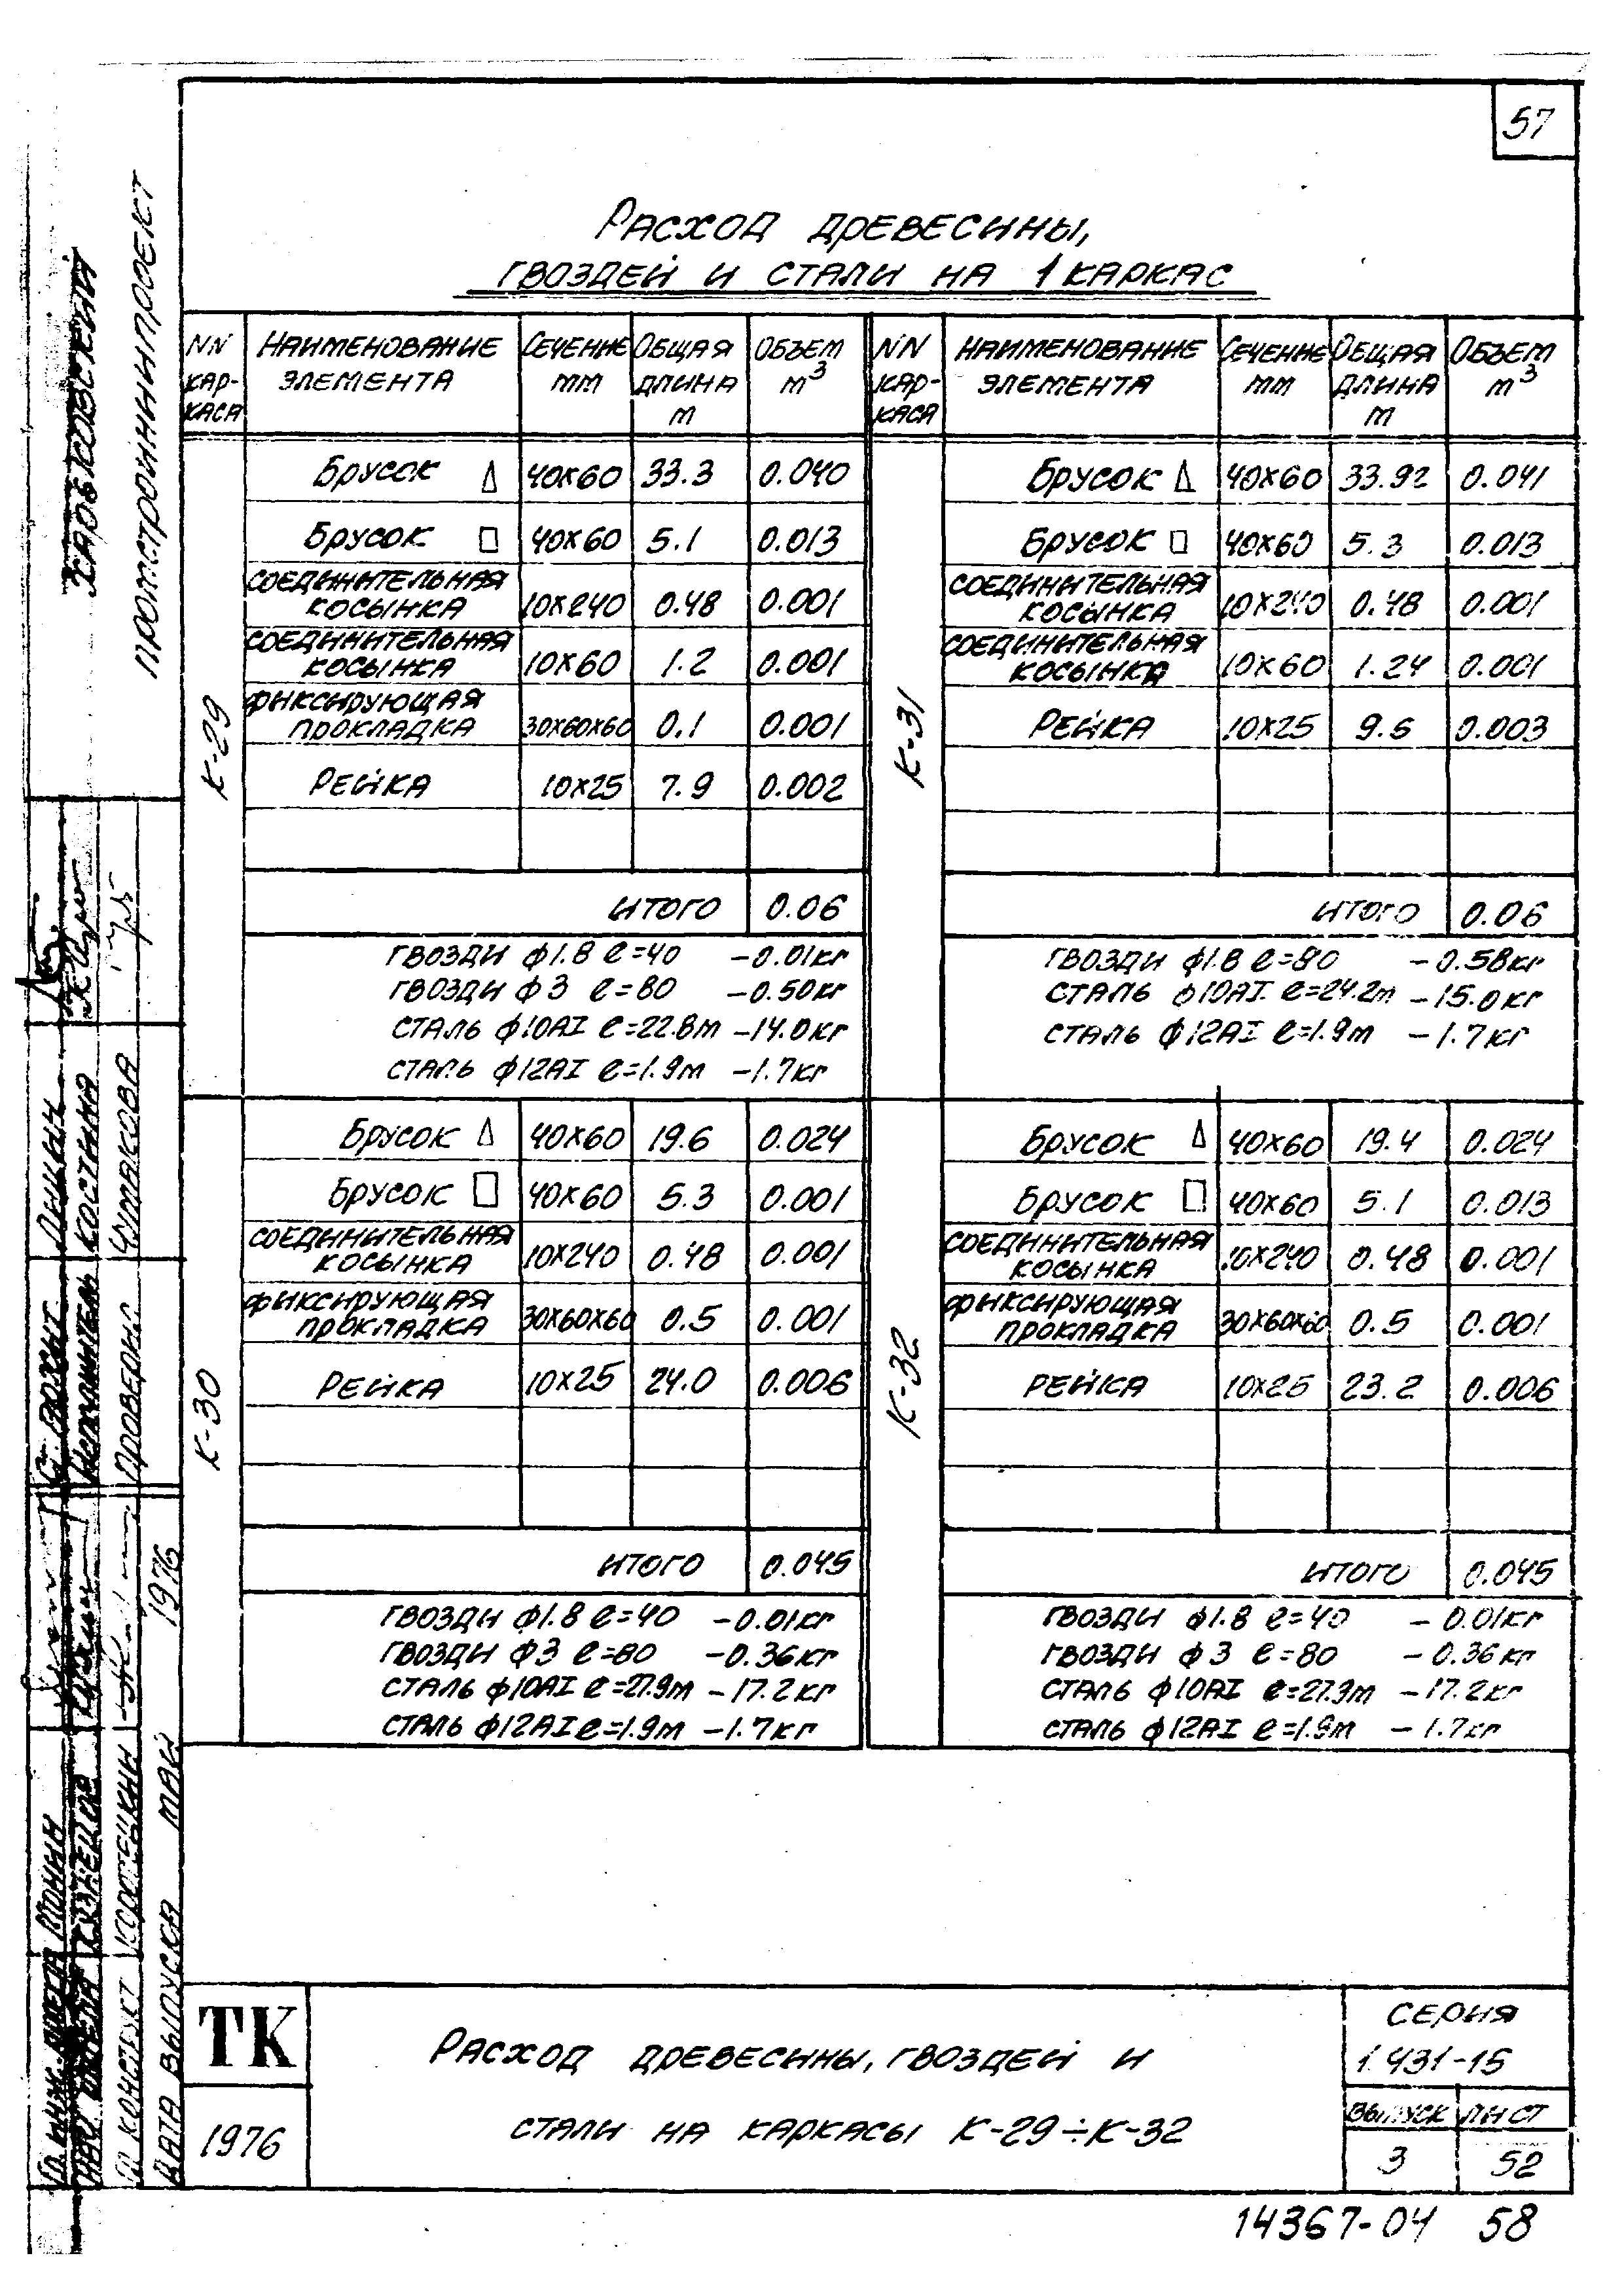 57
Расход древесины,
гвоздей и стали на 1 каркас
NN каркаса | Наименование элемента | Сечение mm | Общая длина m | Объем m³
К-29
Брусок △ 40х60 33.3 0.040
Брусок □ 40х60 5.1 0.013
Соединительная косынка 10х240 0.48 0.001
Соединительная косынка 10х60 1.2 0.001
Фиксирующая прокладка 30х60х60 0.1 0.001
Рейка 10х25 7.9 0.002
Итого 0.06
Гвозди ф1.8 ℓ=40 -0.01кг
Гвозди ф3 ℓ=80 -0.50кг
Сталь ф10АI ℓ=22.8m -14.0кг
Сталь ф12АI ℓ=1.9m -1.7кг
К-30
Брусок △ 40х60 19.6 0.024
Брусок □ 40х60 5.3 0.001
Соединительная косынка 10х240 0.48 0.001
Фиксирующая прокладка 30х60х60 0.5 0.001
Рейка 10х25 24.0 0.006
Итого 0.045
Гвозди ф1.8 ℓ=40 -0.01кг
Гвозди ф3 ℓ=80 -0.36кг
Сталь ф10АI ℓ=27.9m -17.2кг
Сталь ф12АI ℓ=1.9m -1.7кг
NN каркаса | Наименование элемента | Сечение mm | Общая длина m | Объем m³
К-31
Брусок △ 40х60 33.92 0.041
Брусок □ 40х60 5.3 0.013
Соединительная косынка 10х240 0.48 0.001
Соединительная косынка 10х60 1.24 0.001
Рейка 10х25 9.6 0.003
Итого 0.06
Гвозди ф1.8 ℓ=80 -0.58кг
Сталь ф10АI ℓ=24.2m -15.0кг
Сталь ф12АI ℓ=1.9m -1.7кг
К-32
Брусок △ 40х60 19.4 0.024
Брусок □ 40х60 5.1 0.013
Соединительная косынка 10х240 0.48 0.001
Фиксирующая прокладка 30х60х60 0.5 0.001
Рейка 10х25 23.2 0.006
Итого 0.045
Гвозди ф1.8 ℓ=40 -0.01кг
Гвозди ф3 ℓ=80 -0.36кг
Сталь ф10АI ℓ=27.9m -17.2кг
Сталь ф12АI ℓ=1.9m -1.7кг
ТК
1976
Расход древесины, гвоздей и
стали на каркасы К-29÷К-32
Серия
1.431-15
Выпуск 3
Лист 52
14367-04 58
Харьковский
Промстройниипроект
Исполнитель Костина
Проверил Чумакова
Кузнецов
Гл. констукт Коровецкий
Дата выпуска май 1976